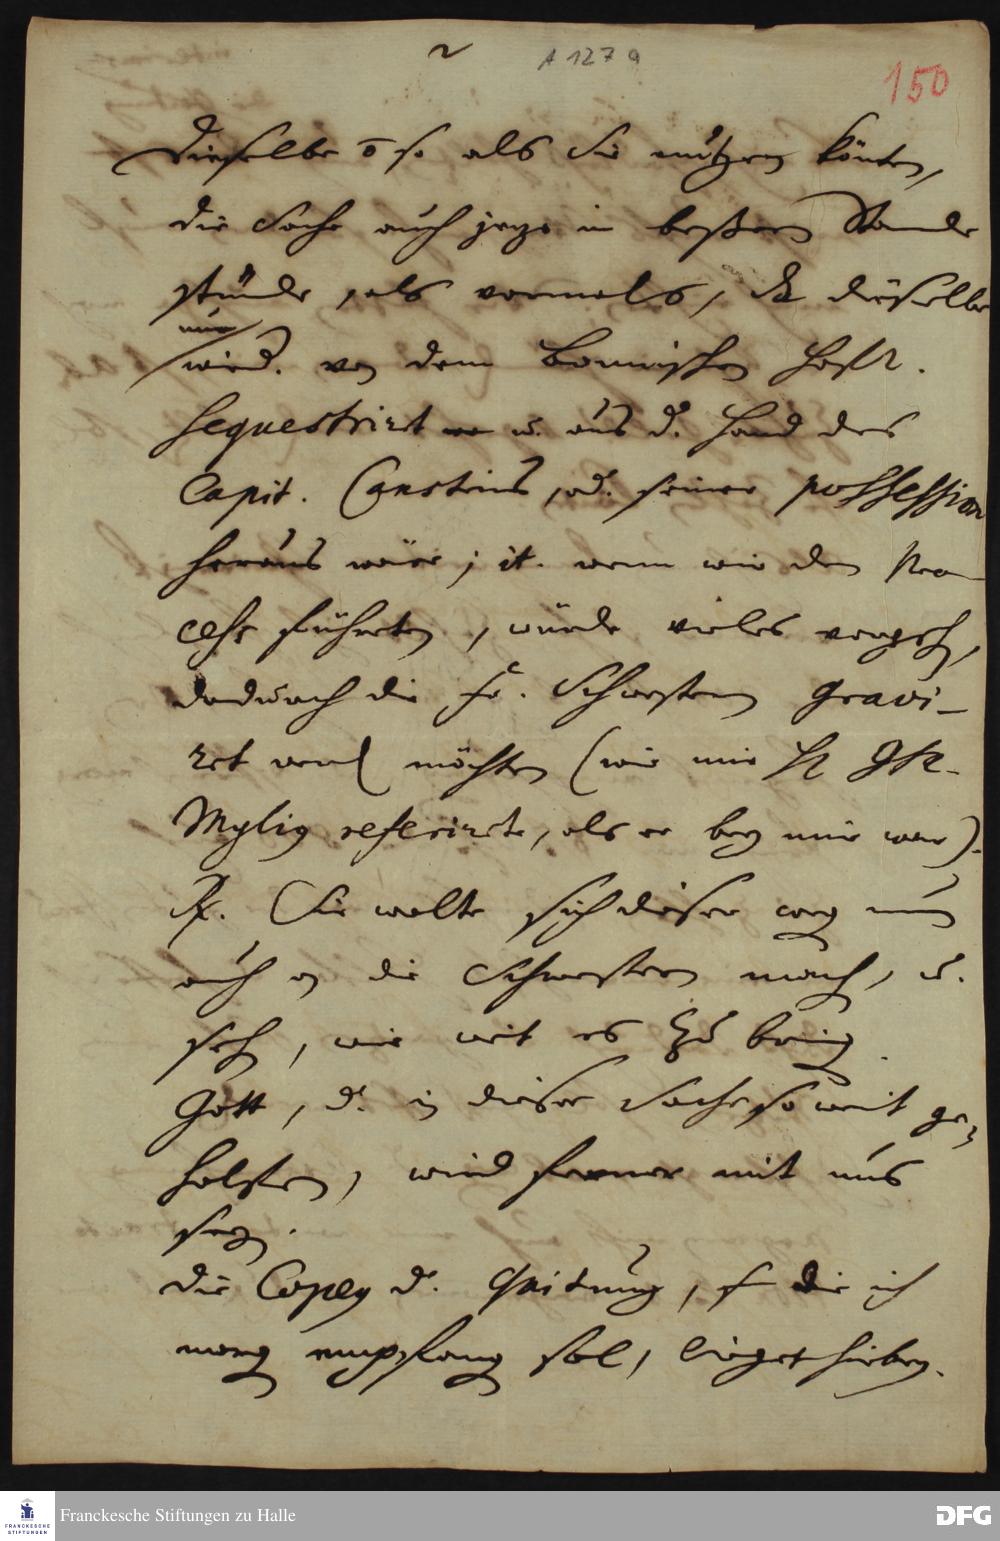 2
A 127 a
150
dieselbe so als Sie nutzen könten,
die Sache auch jezo in beßerm Stande
stünde, als vormals, dieselbe
nur
wird. von dem
sequestriret u. aus d. Hand des
Capit. Cansteins, od. seiner possession
heraus wäre; it. wenn wir den Pro-
cess führten, würde vieles vorgeh,
dadurch die Fr. Schwestern gravi-
ret werd möchten (wie mir H
Mylig referirete, als er bey mir war).
Sie wolte sich dieser weg nun
auch an die Schwestern mach, u.
seh, wie weit es zu bring.
Gott, d. in dieser Sache so weit ge-
holffen, wird ferner mit uns
seyn.
Die Copey d. Quitung, die ich
morg empfang sol, lieget hiebey.
FRANCKESCHE
STIFTUNGEN
Franckesche Stiftungen zu Halle
DFG